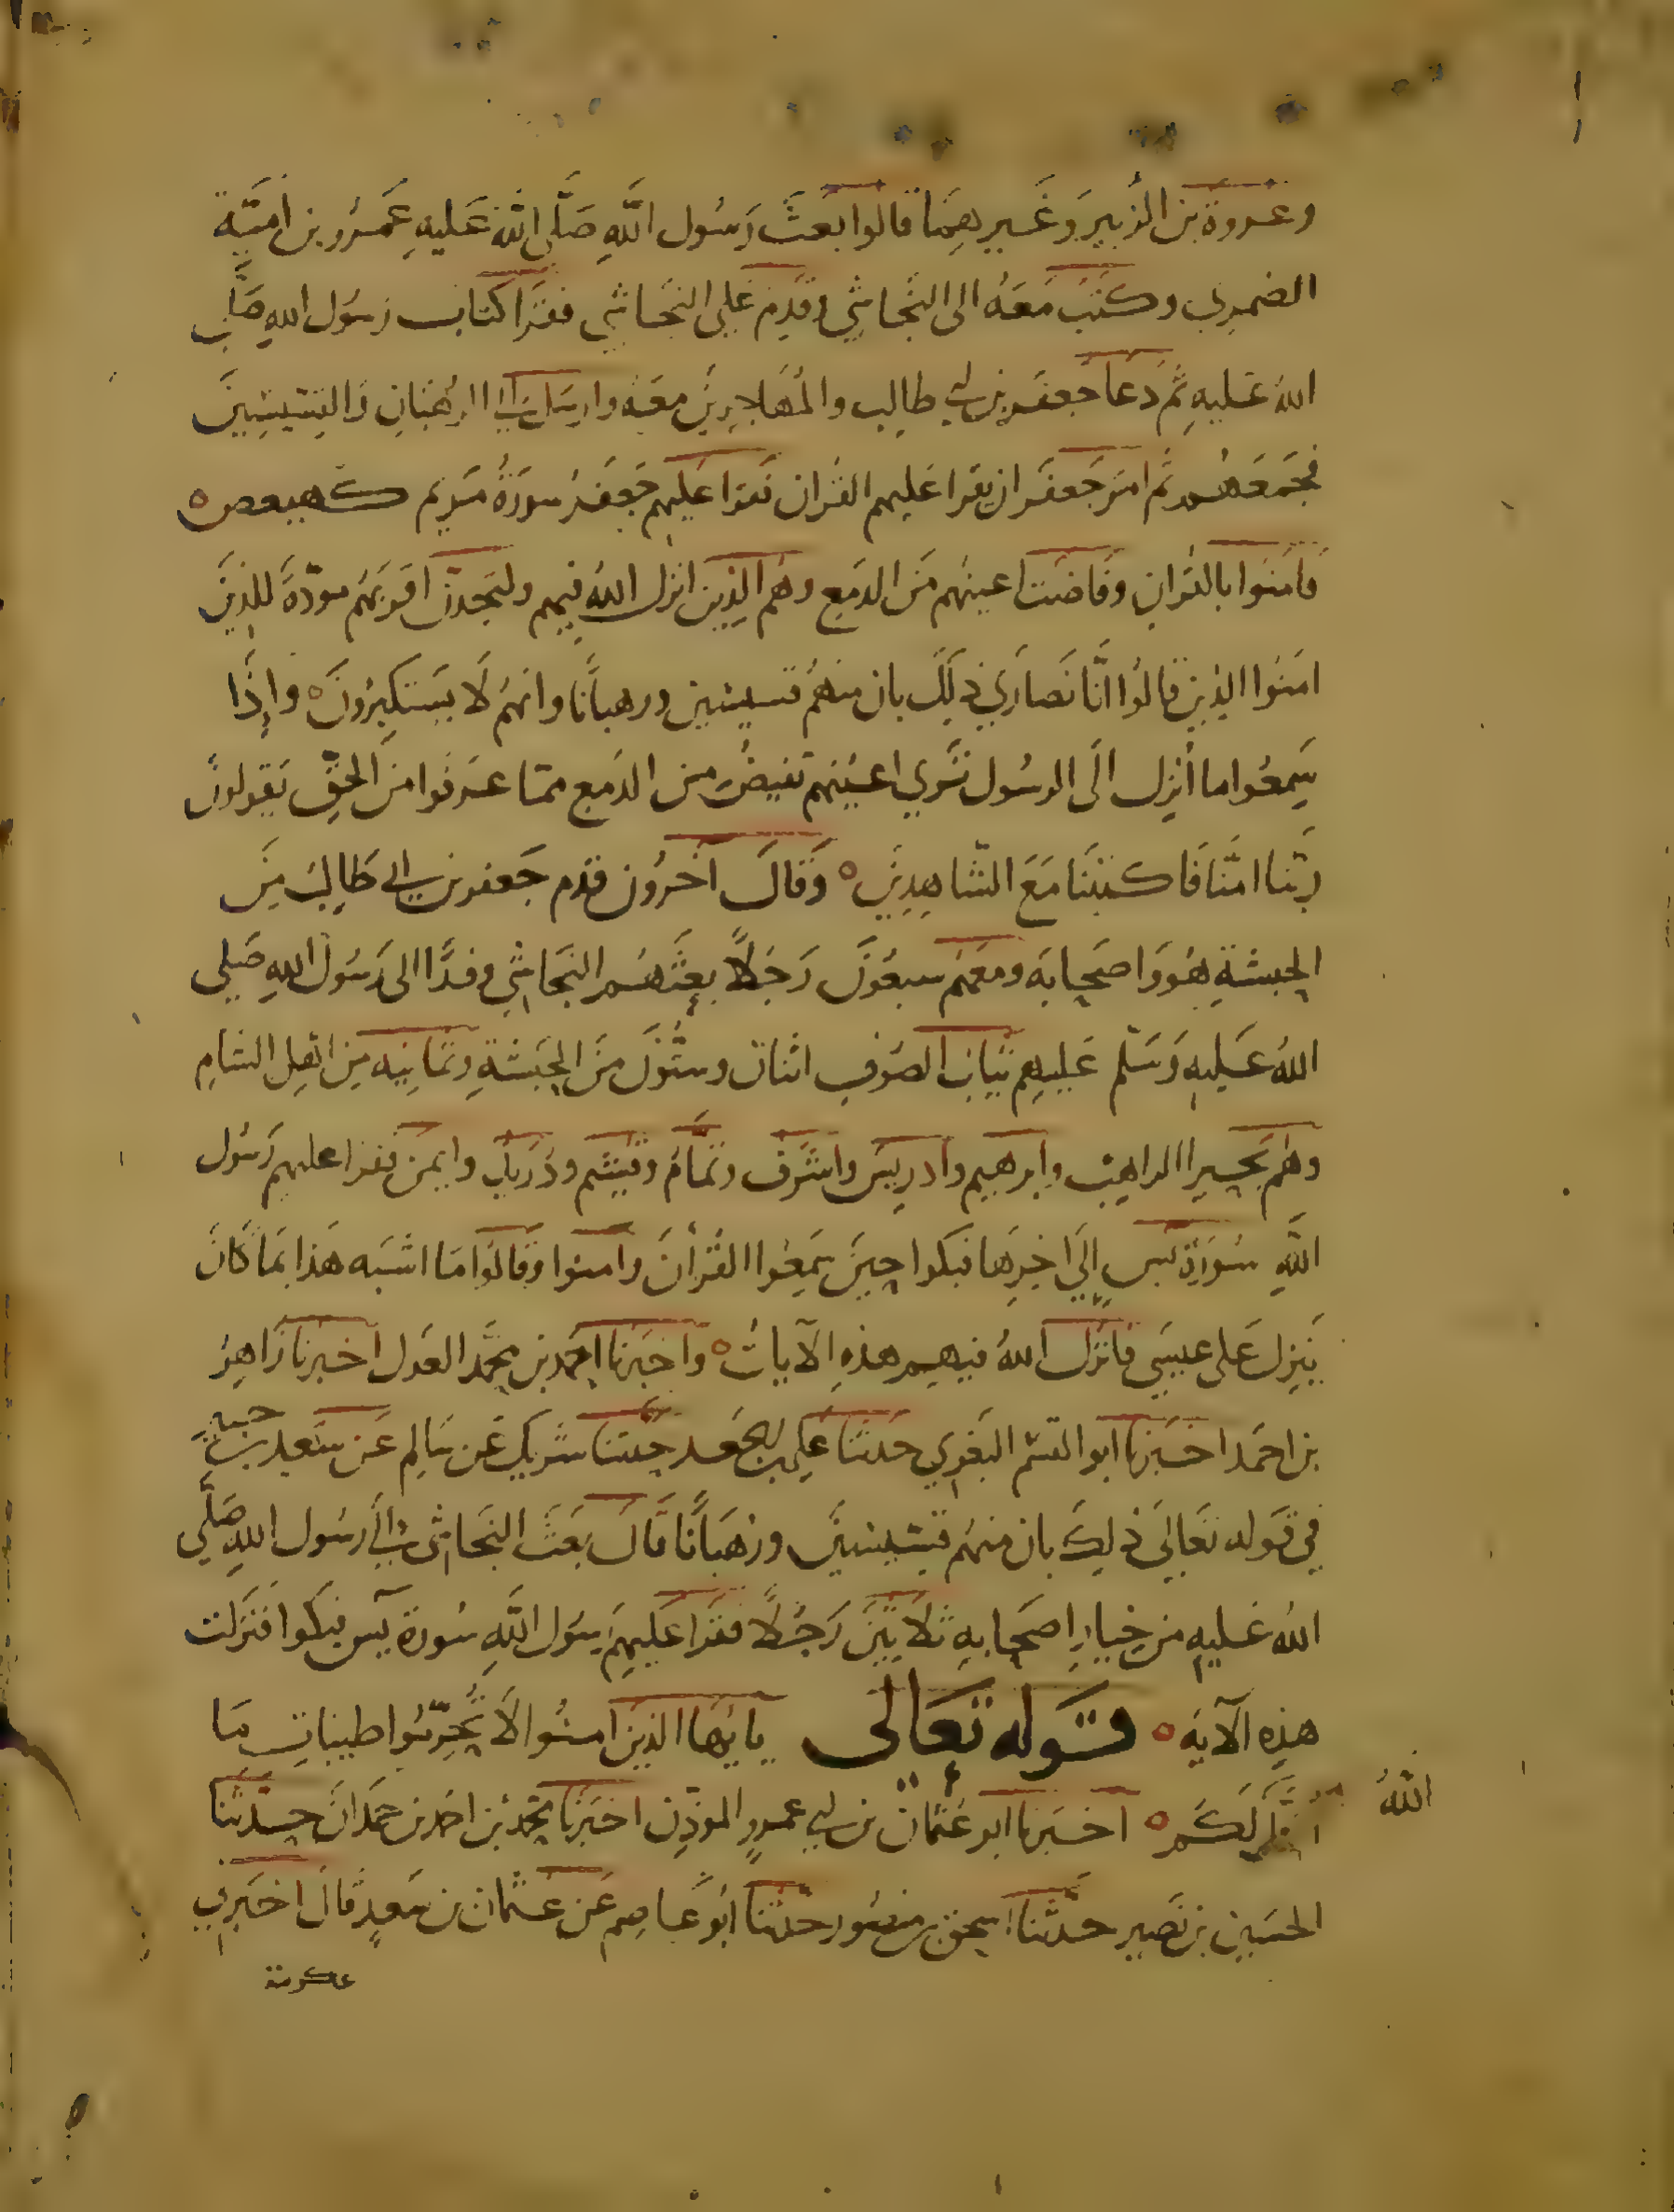 وعروة بن الزبير وغيرهما قالوا بعث رسول الله صلى الله عليه عمرو بن امية
الضمري وكتب معه الى النجاشي وقدم على النجاشي فقرا كتاب رسول الله صلى
الله عليه ثم دعا جعفر بن ابي طالب والمهاجرين معه وارسل الى الرهبان والقسيسين
فجمعهم ثم امر جعفر ان يقرا عليهم القران فقرا عليهم جعفر سورة مريم كهيعص
فامنوا بالقران وفاضت اعينهم من الدمع وهم الذين انزل الله فيهم ولتجدن اقربهم مودة للذين
امنوا الذين قالوا انا نصارى ذلك بان منهم قسيسين ورهبانا وانهم لا يستكبرون واذا
سمعوا ما أنزل الى الرسول ترى اعينهم تفيض من الدمع مما عرفوا من الحق يقولون
ربنا امنا فاكتبنا مع الشاهدين وقال آخرون قدم جعفر بن ابي طالب من
الحبشة هو واصحابه ومعهم سبعون رجلا بعثهم النجاشي وفدا الى رسول الله صلى
الله عليه وسلم عليهم ثياب الصوف اثنان وستون من الحبشة وثمانيه من اهل الشام
وهم بحيرا الراهب وابرهيم وادريس واشرف وتمام وقيثم ودريد وايمن فقرا عليهم رسول
الله سورة يس الى اخرها فبكوا حين سمعوا القرآن وامنوا وقالوا ما اشبه هذا بما كان
ينزل على عيسى فانزل الله فيهم هذه الآيات واخبرنا احمد بن محمد العدل اخبرنا زاهر
بن احمد اخبرنا ابو القسم البغوي حدثنا علي بن الجعد حدثنا شريك عن سالم عن سعيد بن جبير
في قوله تعالى ذلك بان منهم قسيسين ورهبانا قال بعث النجاشي الى رسول الله صلى
الله عليه من خيار اصحابه ثلاثين رجلا فقرا عليهم رسول الله سورة يس فبكوا فنزلت
هذه الآيه قوله تعالى يا ايها الذين امنوا لا تحرموا طيبات ما
احل لكم اخبرنا ابو عثمان بن ابي عمرو المؤذن اخبرنا محمد بن احمد بن حمدان حدثنا
الله
الحسين بن نصير حدثنا اسحق بن منصور حدثنا ابو عاصم عن عثمان بن سعد قال اخبرني
عكرمة